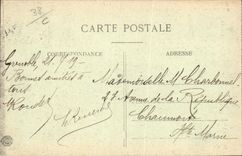 38
CARTE POSTALE
CORRESPONDANCE
ADRESSE
Grenoble, 21-9-19
Bonnes amitiés à
tous
Mademoiselle M. Charbonnel
Avenue de la République
Chaumont
Hte Marne